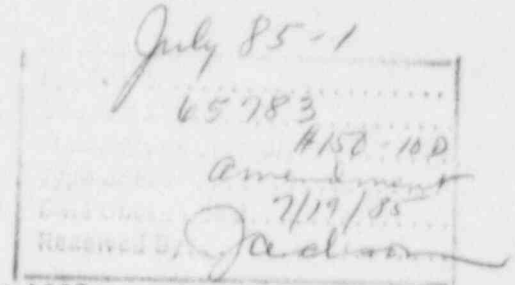 July 85-1
65783
#150-10D
amendment
7/19/85
Received By Jackson